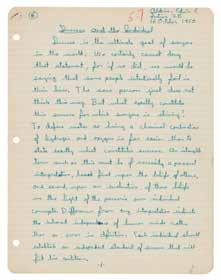 Success and the Individual
Success is the ultimate goal of everyone
in the world. We certainly cannot deny
that statement, for if we did, we would be
saying that some people intentionally fail in
their lives. The sane person just does not
think this way. But what exactly constitutes
this success for which everyone is striving?
To define water as being a chemical combination
of hydrogen and oxygen is far easier than to
state exactly what constitutes success. An abstract
term such as this must be of necessity a personal
interpretation, based first upon the beliefs of others,
and second, upon an evaluation of these beliefs
in the light of the person's own individual
concepts. Difference from any interpretation indicates
the rational independence of human minds rather
than an error in definition. Each individual should
establish an independent standard of success that will
fit his abilities.